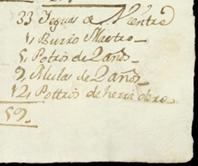 33 Yeguas de Vientre
1, Burro Maetro
5, Potros de 2 años
9, Mulas de 2 años
12, Pottros de herra
59.